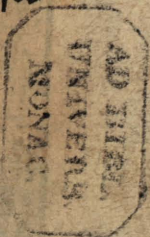 AD BIBL.
UNIVERS.
MONAC.